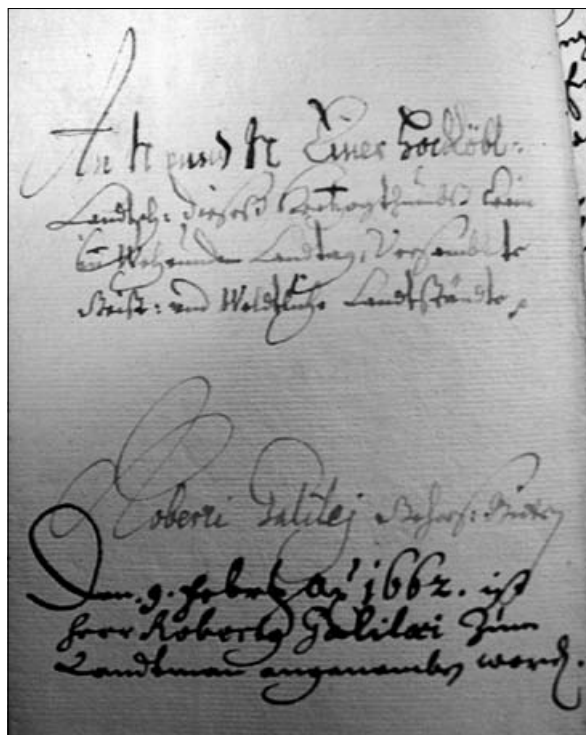 An N und N Einer Hochlöbl:
Landsch: dieses Hertzogthumbs Crain
im Wehrunden Landtag, Versamblete
Geist: und Weldtliche Landtstände,
Roberti Galilej gehors:
Den. 9. Febr: Aõ 1662. ist
Herr Roberto Galilæi Zum
Landtman angenomben word.